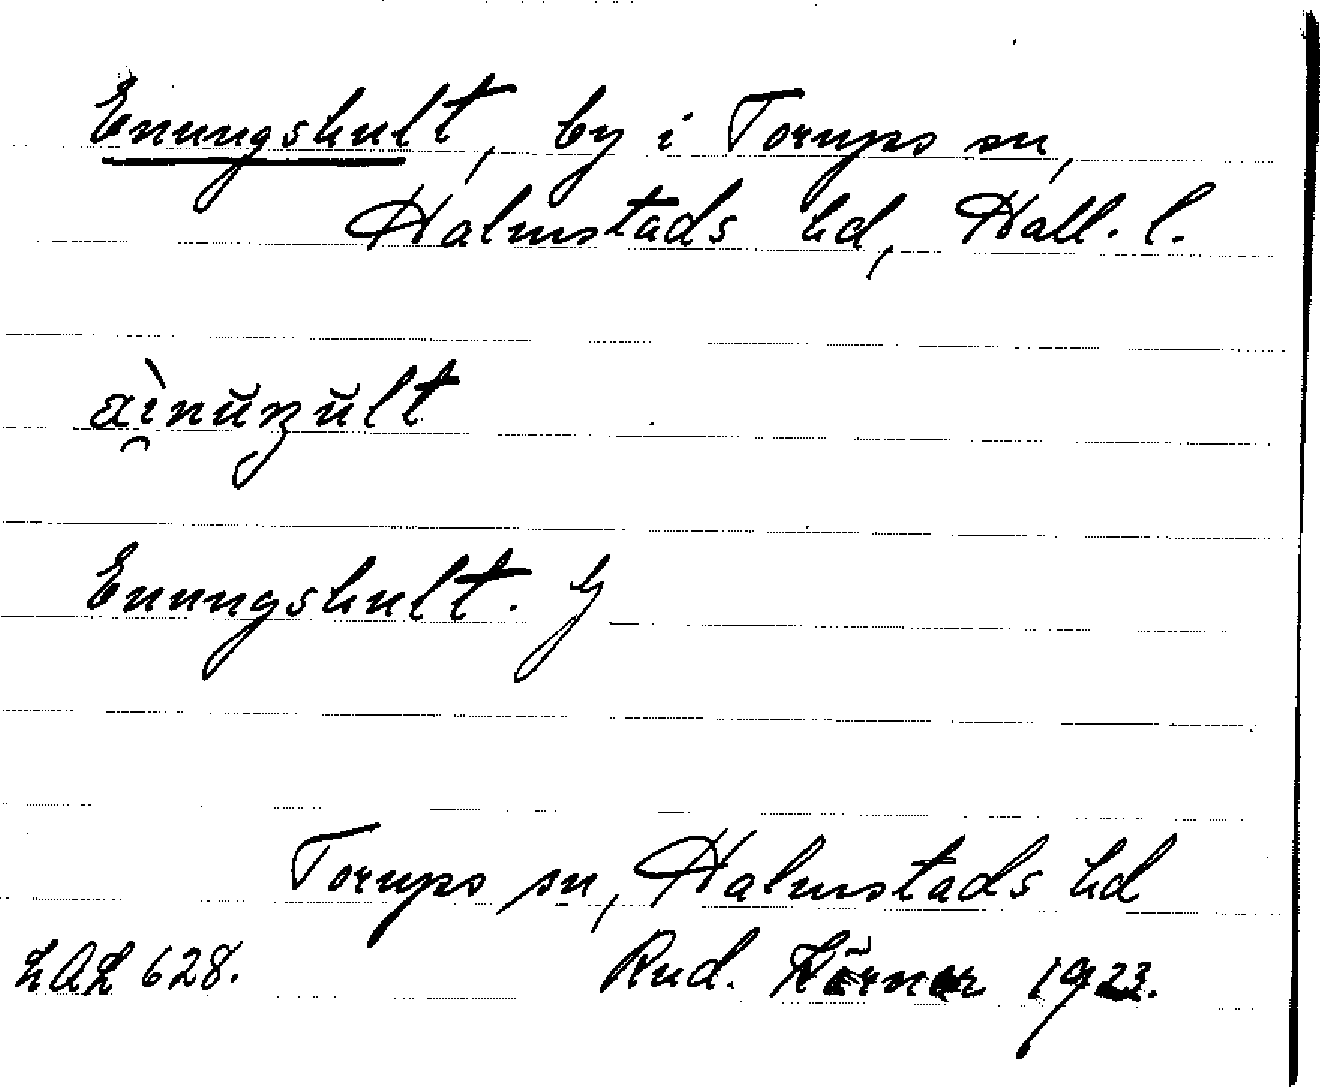 Enungshult, by i Torups sn,
Halmstads hd, Hall. l.
Enungshult. G
Torups sn, Halmstads hd
LAL 628. Rud. Körner 1923.